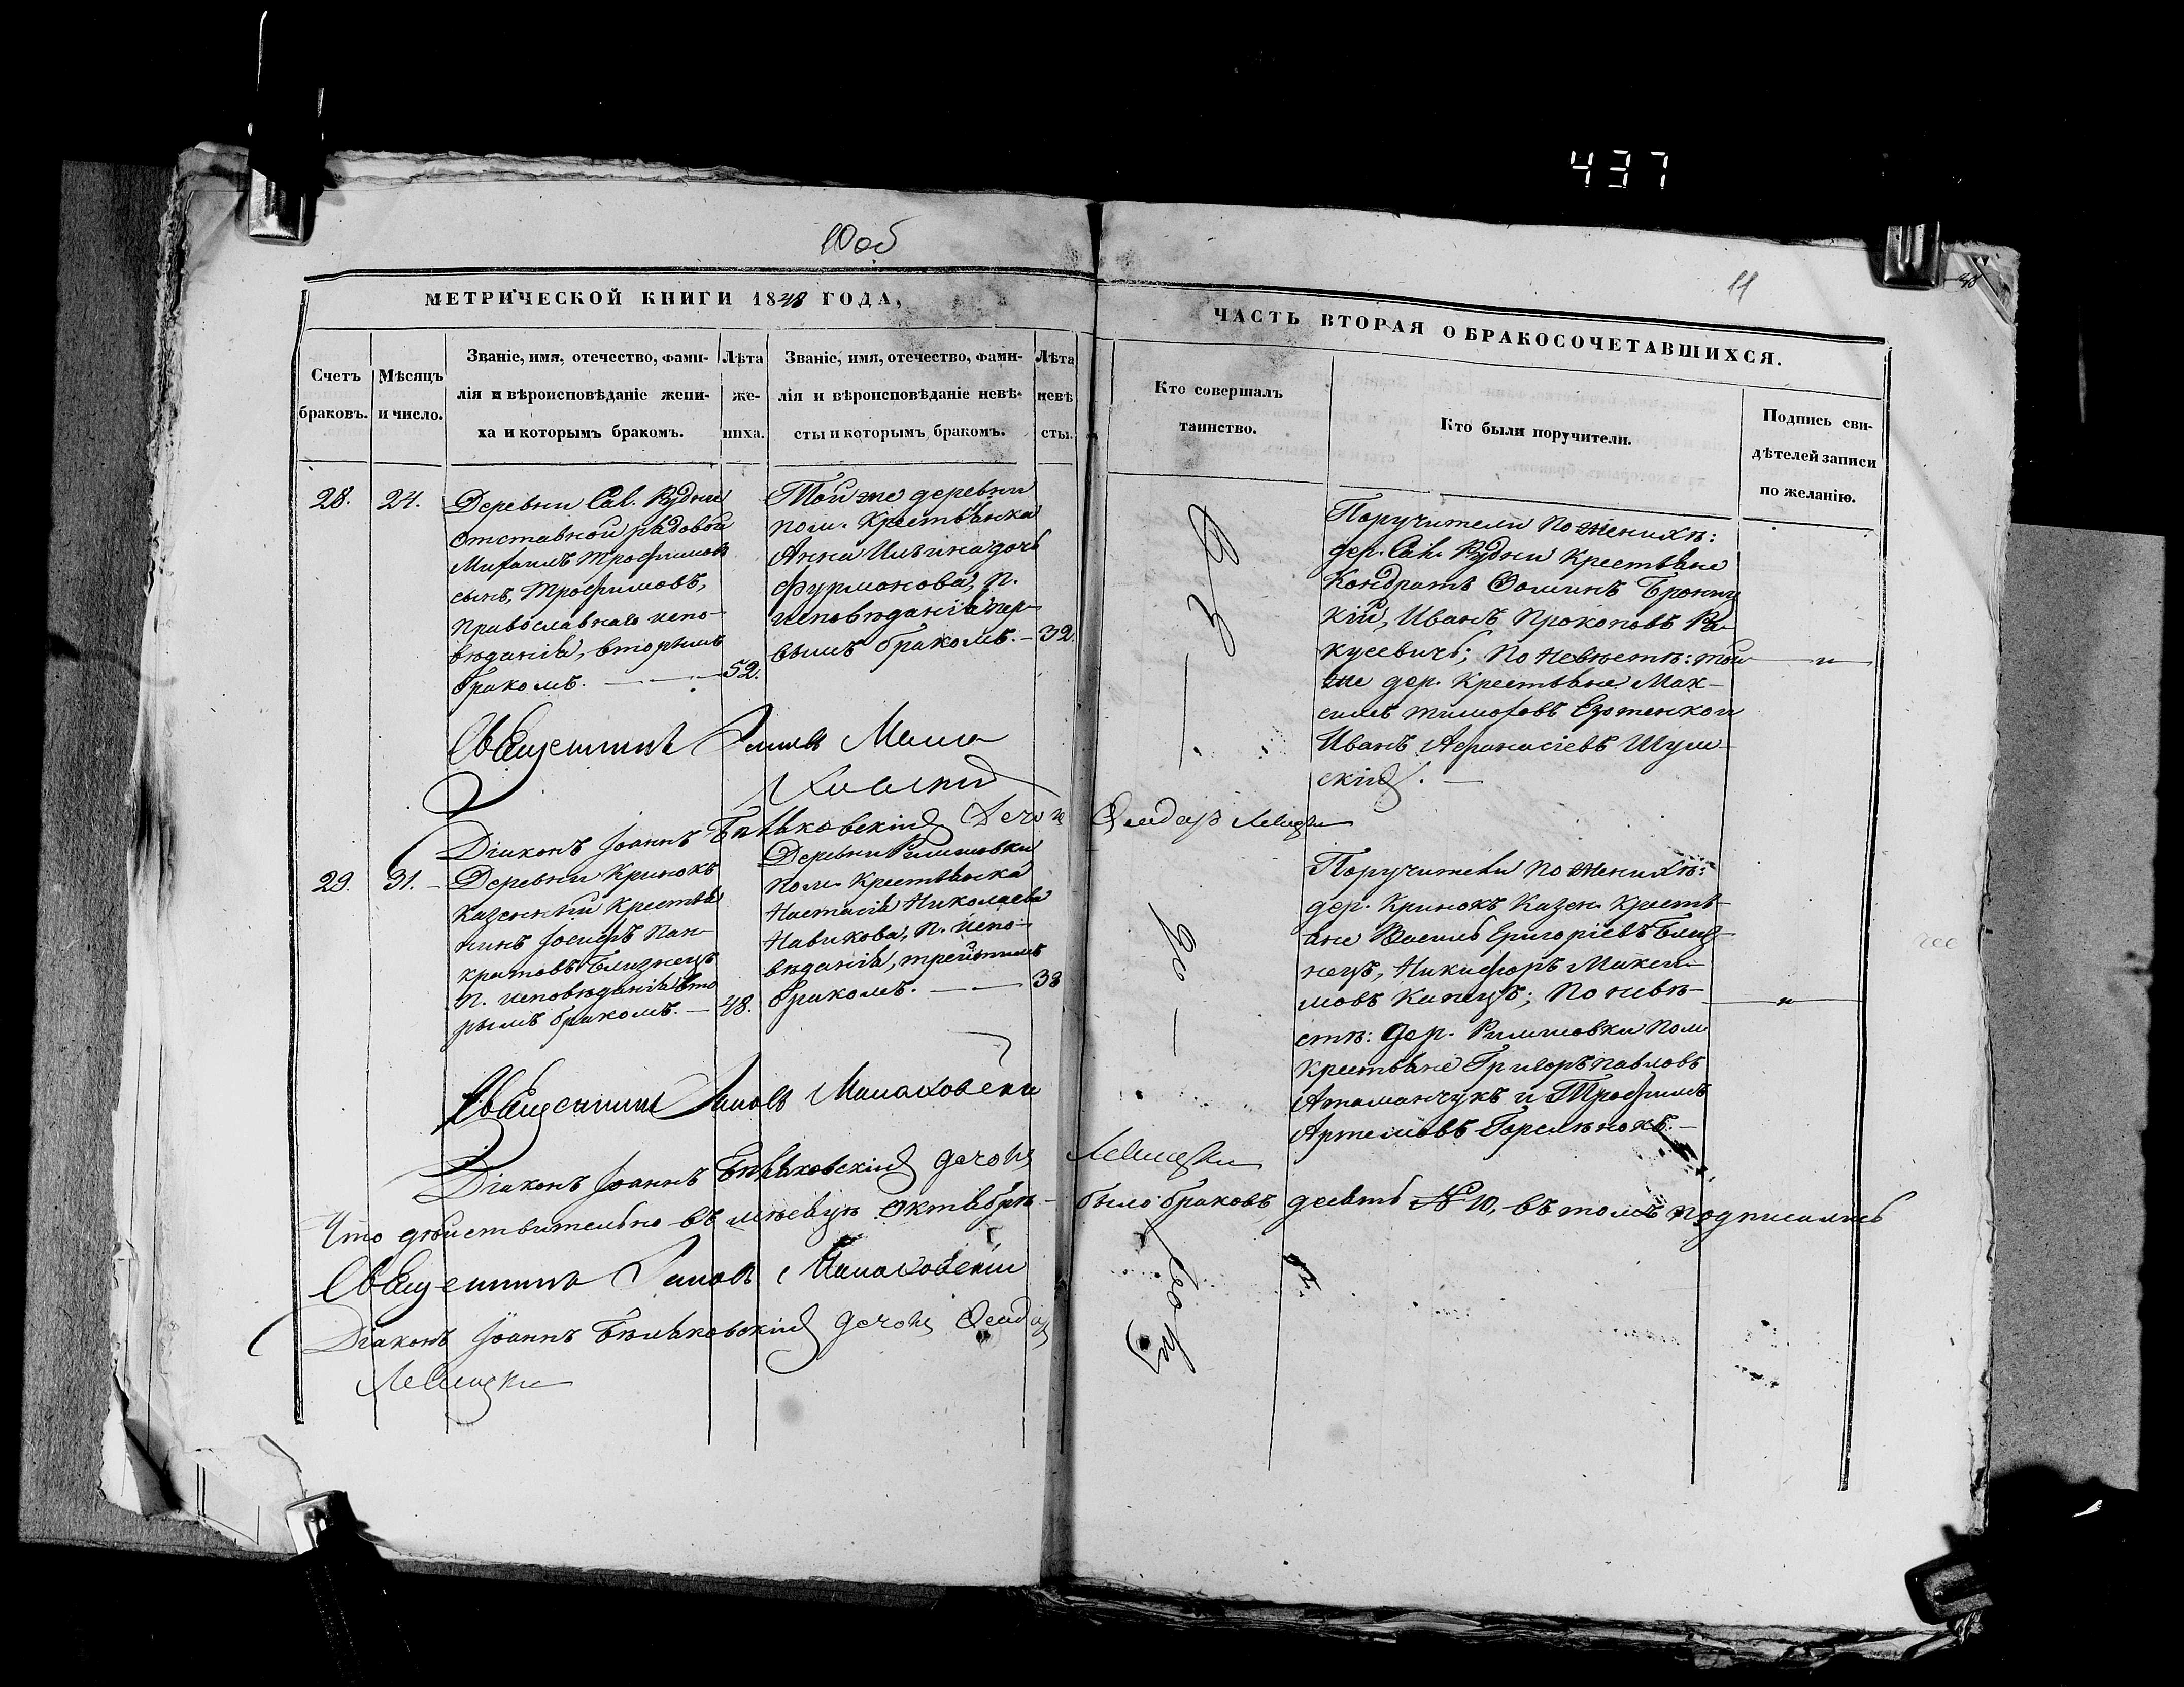 437
10 об
11
МЕТРИЧЕСКОЙ КНИГИ 1848 ГОДА,
ЧАСТЬ ВТОРАЯ О БРАКОСОЧЕТАВШИХСЯ.
Счетъ браковъ.
Мѣсяцъ и число.
Званіе, имя, отечество, фами-
лія и вѣроисповѣданіе жени-
ха и которымъ бракомъ.
Лѣта
же-
ниха.
Званіе, имя, отечество, фами-
лія и вѣроисповѣданіе невѣ-
сты и которымъ бракомъ.
Лѣта
невѣ
сты.
Кто совершалъ
таинство.
Кто были поручители.
Подпись сви-
дѣтелей записи
по желанію.
28.
24.
Деревни Сах. Рудни
отставной рядовой
Михаилъ Трофимовъ
сынъ, Трофимовъ,
православнаго испо-
вѣданія, вторымъ
бракомъ. —
52.
Той же деревни
пом. крестьянка
Анна Ильина дочь
Фурманова, п.
исповѣданія пер-
вымъ бракомъ. —
32.
Поручители по женихѣ:
дер. Сах. Рудни крестьяне
Кондратъ Фоминъ
кій, Иванъ Прокоповъ Ра-
кусевичъ; по невѣстѣ: той
же дер. крестьяне Мак-
симъ Тимофовъ и
Иванъ Афанасіевъ Шум-
скій. —
Священникъ Мала
ховскій
Діаконъ Іоаннъ Бѣльковскій
29.
31. -
Деревни Кринокъ
казенный крестья
нинъ Іосифъ Пан-
кратовъ Близнецъ
п. исповѣданія вто
рымъ бракомъ. —
48.
Деревни Римшовки
пом. крестьянка
Настасія Николаева
Навикова, п. испо-
вѣданія, третимъ
бракомъ. —
38
Поручители по женихѣ:
дер. Кринокъ казен. кресть-
яне Василь Григоріевъ Близ-
нецъ, Никифоръ Макси-
мовъ Капецъ; по невѣ-
стѣ: дер. Римшовки пом
крестьяне Григоръ Павловъ
Атаманчукъ и Трофимъ
Артемовъ Горелѣнокъ. —
Священникъ Малаховскій
Діаконъ Іоаннъ Бѣльковскій дячокъ Левицки
Что дѣйствительно въ мѣсяцѣ Октябрѣ - было браковъ десять № 10, въ томъ подписались
Священникъ Малаховскій
Діаконъ Іоаннъ Бѣльковскій дячокъ
Левицки